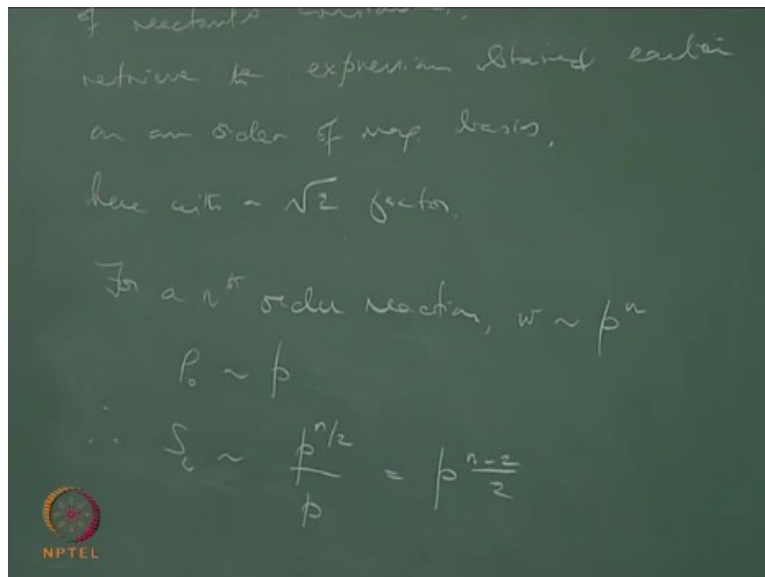 of reactants
retrieve the expression obtained earlier
on an order of mag. basis,
here with a √2 factor.
For a nᵗʰ order reaction, w ~ pⁿ
ρ₀ ~ p
∴ S_L ~ p^{n/2} / p = p^{(n-2)/2}
NPTEL